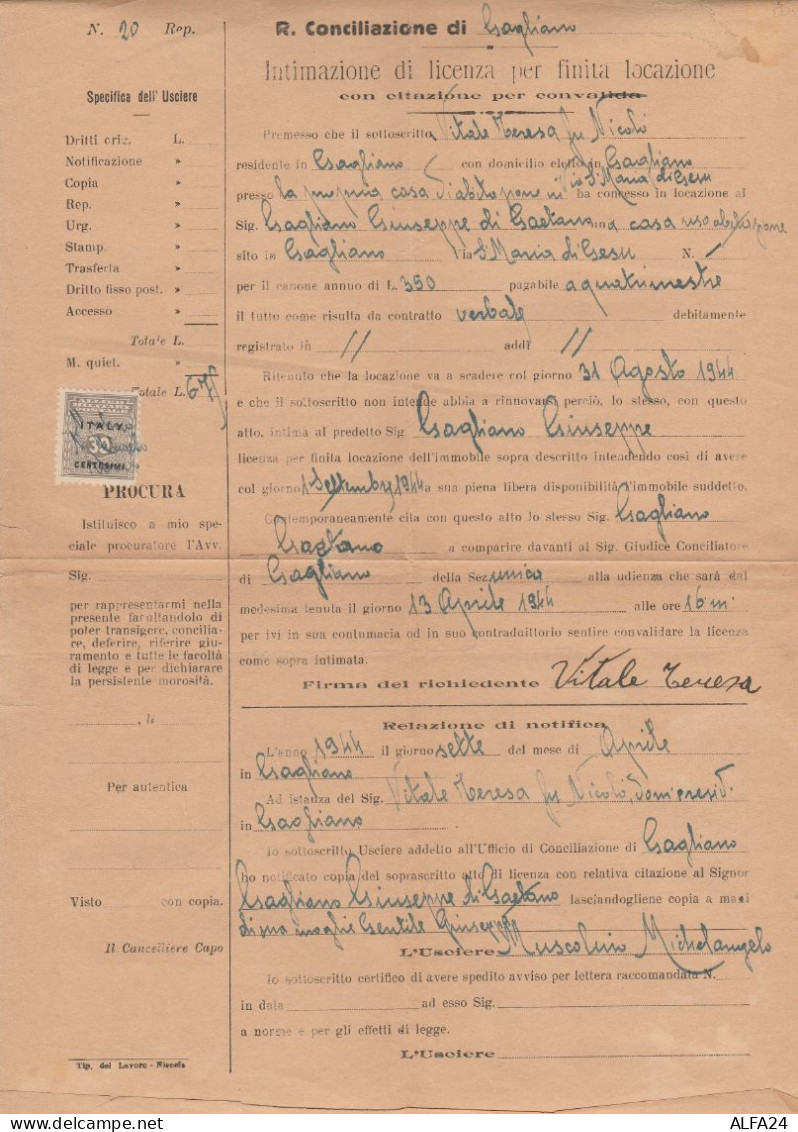 N. 20 Rep.
Specifica dell' Usciere
Dritti orig. L.
Notificazione »
Copia »
Rep. »
Urg. »
Stamp. »
Trasferta »
Dritto fisso post. »
Accesso »
Totale L.
M. quiet. »
Totale L.
ITALY
30
CENTESIMI
PROCURA
Istituisco a mio spe-
ciale procuratore l'Avv.
Sig.
per rappresentarmi nella
presente facultandolo di
poter transigere, concilia-
re, deferire, riferire giu-
ramento e tutte le facoltà
di legge e per dichiarare
la persistente morosità.
, lì
Per autentica
Visto con copia.
Il Cancelliere Capo
Tip. del Lavoro - Nicosia
R. Conciliazione di Gagliano
Intimazione di licenza per finita locazione
con citazione per convalida
Premesso che il sottoscritto Vitale Teresa fu Nicolò
residente in Gagliano con domicilio eletto in Gagliano
presso la propria casa d'abitazione in Via S. Maria di Gesu ha concesso in locazione al
Sig. Gagliano Giuseppe di Gaetano una casa uso abitazione
sito in Gagliano Via S. Maria di Gesu N.
per il canone annuo di L. 350 pagabile a quatrimestre
il tutto come risulta da contratto verbale debitamente
registrato in // addì //
Ritenuto che la locazione va a scadere col giorno 31 Agosto 1944
e che il sottoscritto non intende abbia a rinnovarsi perciò, lo stesso, con questo
atto, intima al predetto Sig. Gagliano Giuseppe
licenza per finita locazione dell'immobile sopra descritto intendendo così di avere
col giorno 1 Settembre 1944 a sua piena libera disponibilità l'immobile suddetto.
Contemporaneamente cita con questo atto lo stesso Sig. Gagliano
Gaetano a comparire davanti al Sig. Giudice Conciliatore
di Gagliano della Sez. unica alla udienza che sarà dal
medesimo tenuta il giorno 13 Aprile 1944 alle ore 16 m.
per ivi in sua contumacia od in suo contradoittorio sentire convalidare la licenza
come sopra intimata.
Firma del richiedente Vitale Teresa
Relazione di notifica
L'anno 1944 il giorno sette del mese di Aprile
in Gagliano
Ad istanza del Sig. Vitale Teresa fu Nicolò, dom. e resid.
in Gagliano
Io sottoscritto Usciere addetto all'Ufficio di Conciliazione di Gagliano
ho notificato copia del soprascritto atto di licenza con relativa citazione al Signor
Gagliano Giuseppe di Gaetano lasciandogliene copia a mani
di sua moglie Gentile Giuseppa
L'Usciere Muscolino Michelangelo
Io sottoscritto certifico di avere spedito avviso per lettera raccomandata N.
in data ad esso Sig.
a norme e per gli effetti di legge.
L'Usciere
ALFA24